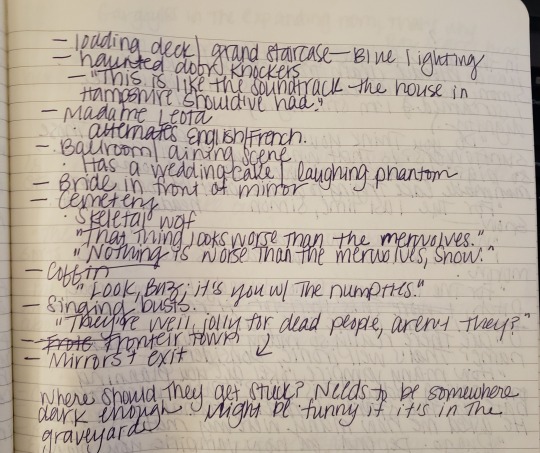 - loading deck/ grand staircase - Blue lighting
- haunted door knockers
- "This is like the soundtrack the house in
Hampshire should've had."
- Madame Leota
· alternates English/French.
- Ballroom/dining scene
· Has a wedding cake/laughing phantom
- Bride in front of mirror
- Cemetery
· Skeletal wolf
"That thing looks worse than the merwolves."
"Nothing is worse than the merwolves, Snow."
- Coffin
"Look, Baz; it's you w/ the numpties."
- Singing busts.
"They're well jolly for dead people, aren't they?"
- fronteir town
- Mirrors + exit
Where should they get stuck? Needs to be somewhere
dark enough. Might be funny if it's in the
graveyard